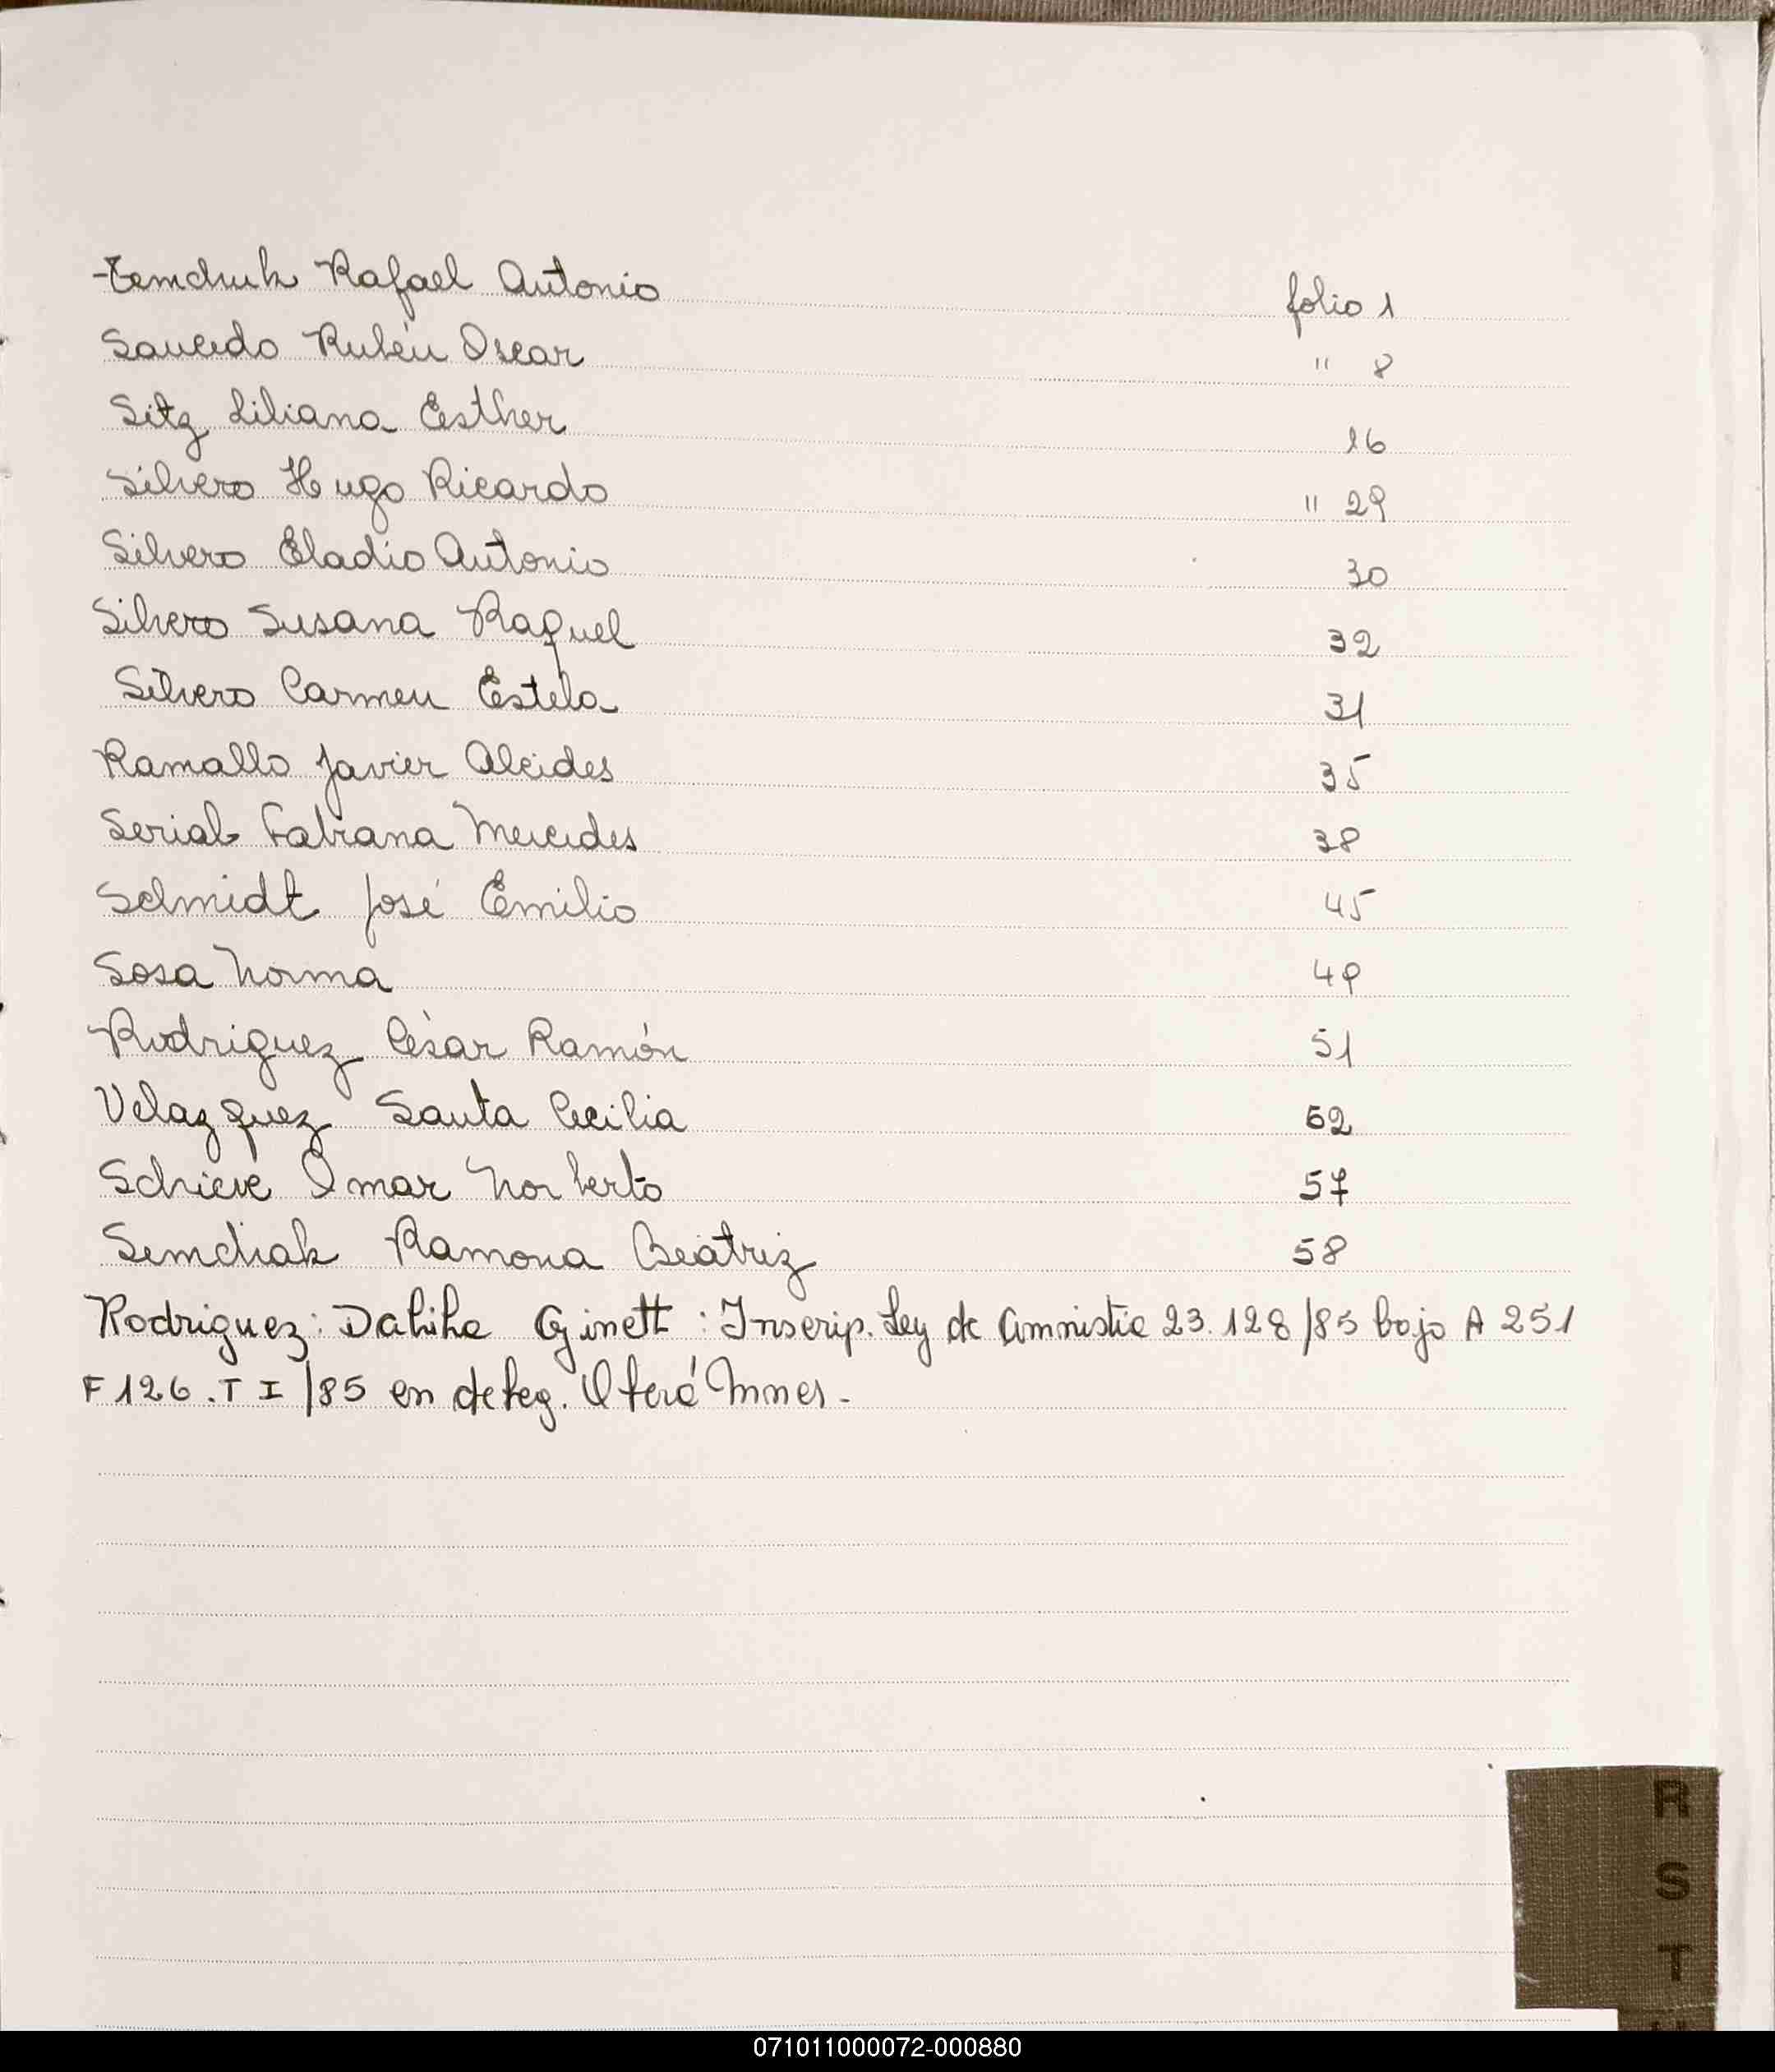 Zemchuk Rafael Antonio folio 1
Saucedo Rubén Oscar " 8
Sitz Liliana Esther 16
Silvero Hugo Ricardo " 29
Silvero Eladio Antonio 30
Silvero Susana Raquel 32
Silvero Carmen Estela 31
Ramallo Javier Alcides 35
Serial Fabiana Mercedes 38
Schmidt José Emilio 45
Sosa Norma 49
Rodriguez César Ramón 51
Velazquez Santa Cecilia 52
Schieve Omar Norberto 57
Semchak Ramona Beatriz 58
Rodriguez: Dahiha Ginett: Inscrip. Ley de Amnistia 23.128/85 bajo A 251
F 126. T I /85 en deleg. Oberá Mnes.
R
S
T
071011000072-000880